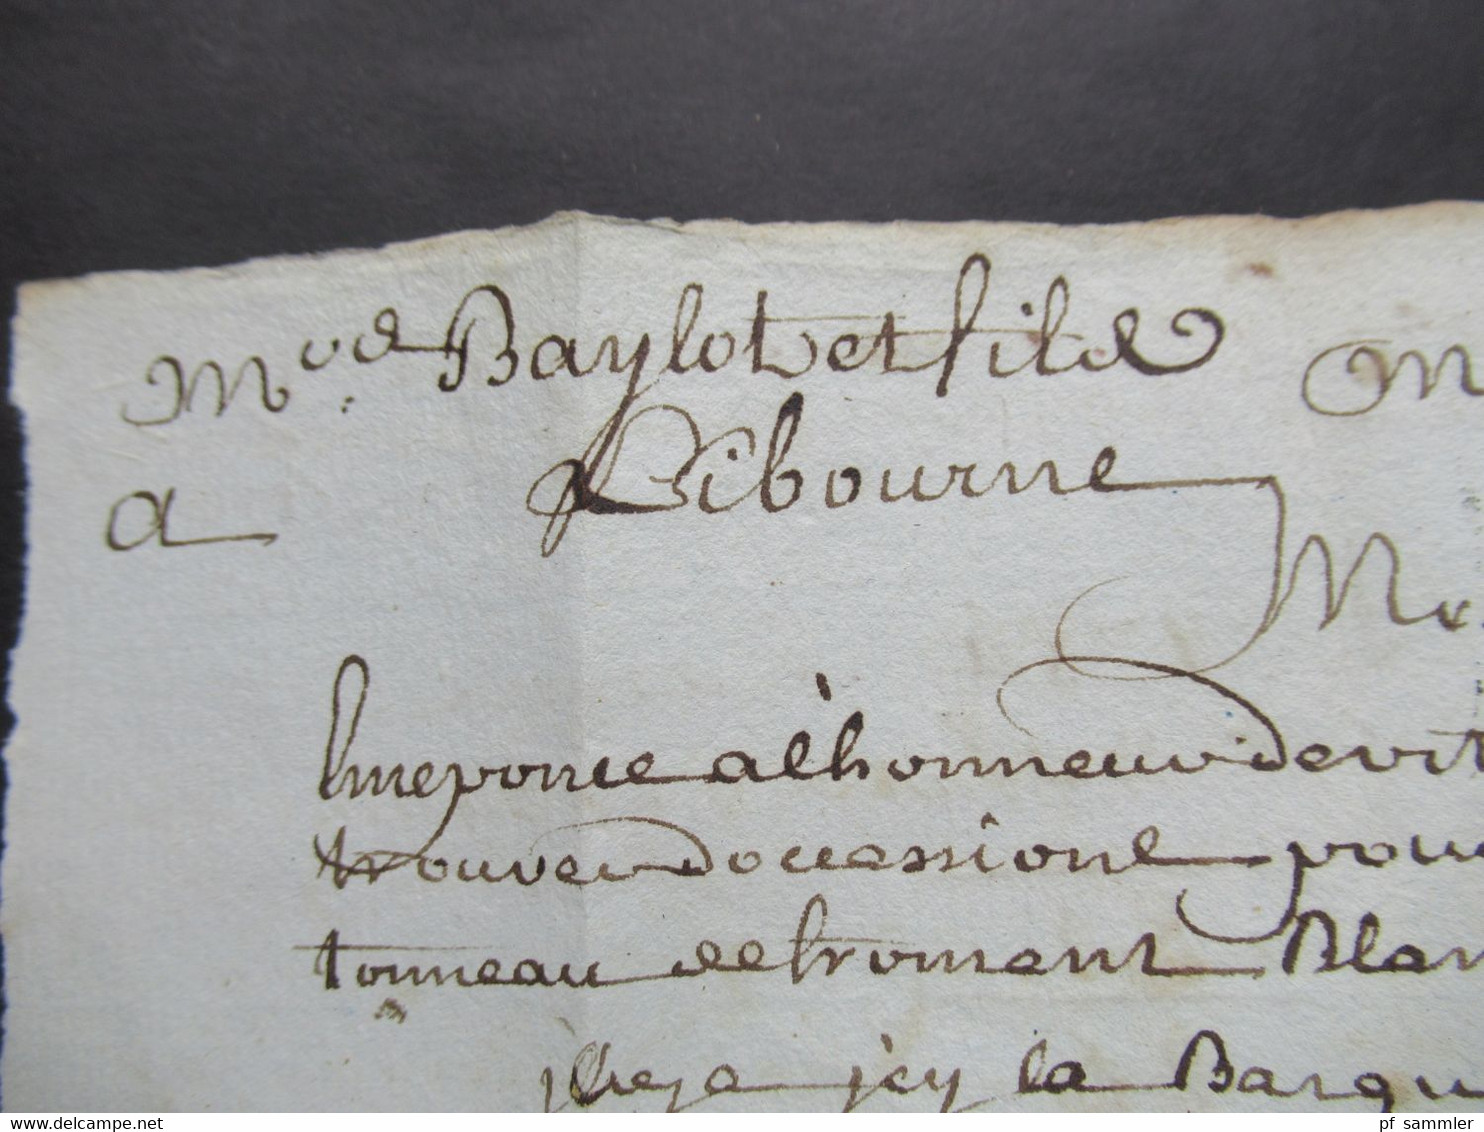 M.ve Baylot et fils M
a Libourne
Me
a l'honneur de
trouver d'occassione pour
tonneau de froment Blan
il y a jcy la Barqu
www.delcampe.net
pf_sammler